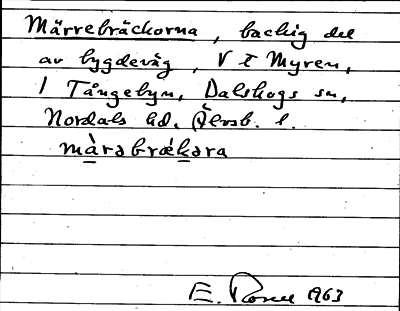 Märrebräckorna, backig del
av bygdeväg, V t Myren,
1 Tångebyn, Dalskogs sn,
Nordals hd. Älvsb. l.
màrəbrækəra
E. Rosell 1963